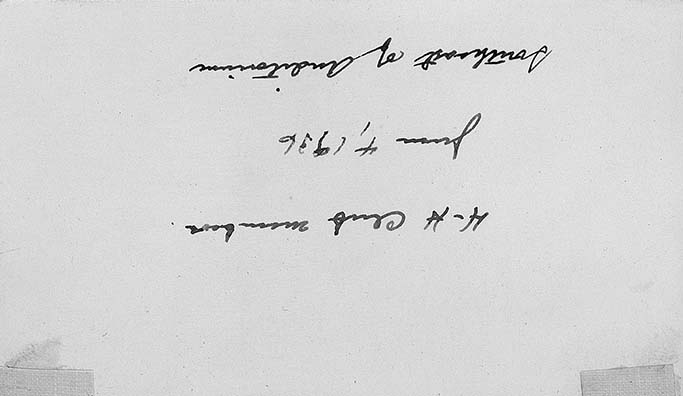 4-H Club members
June 4, 1936
Southeast of Auditorium